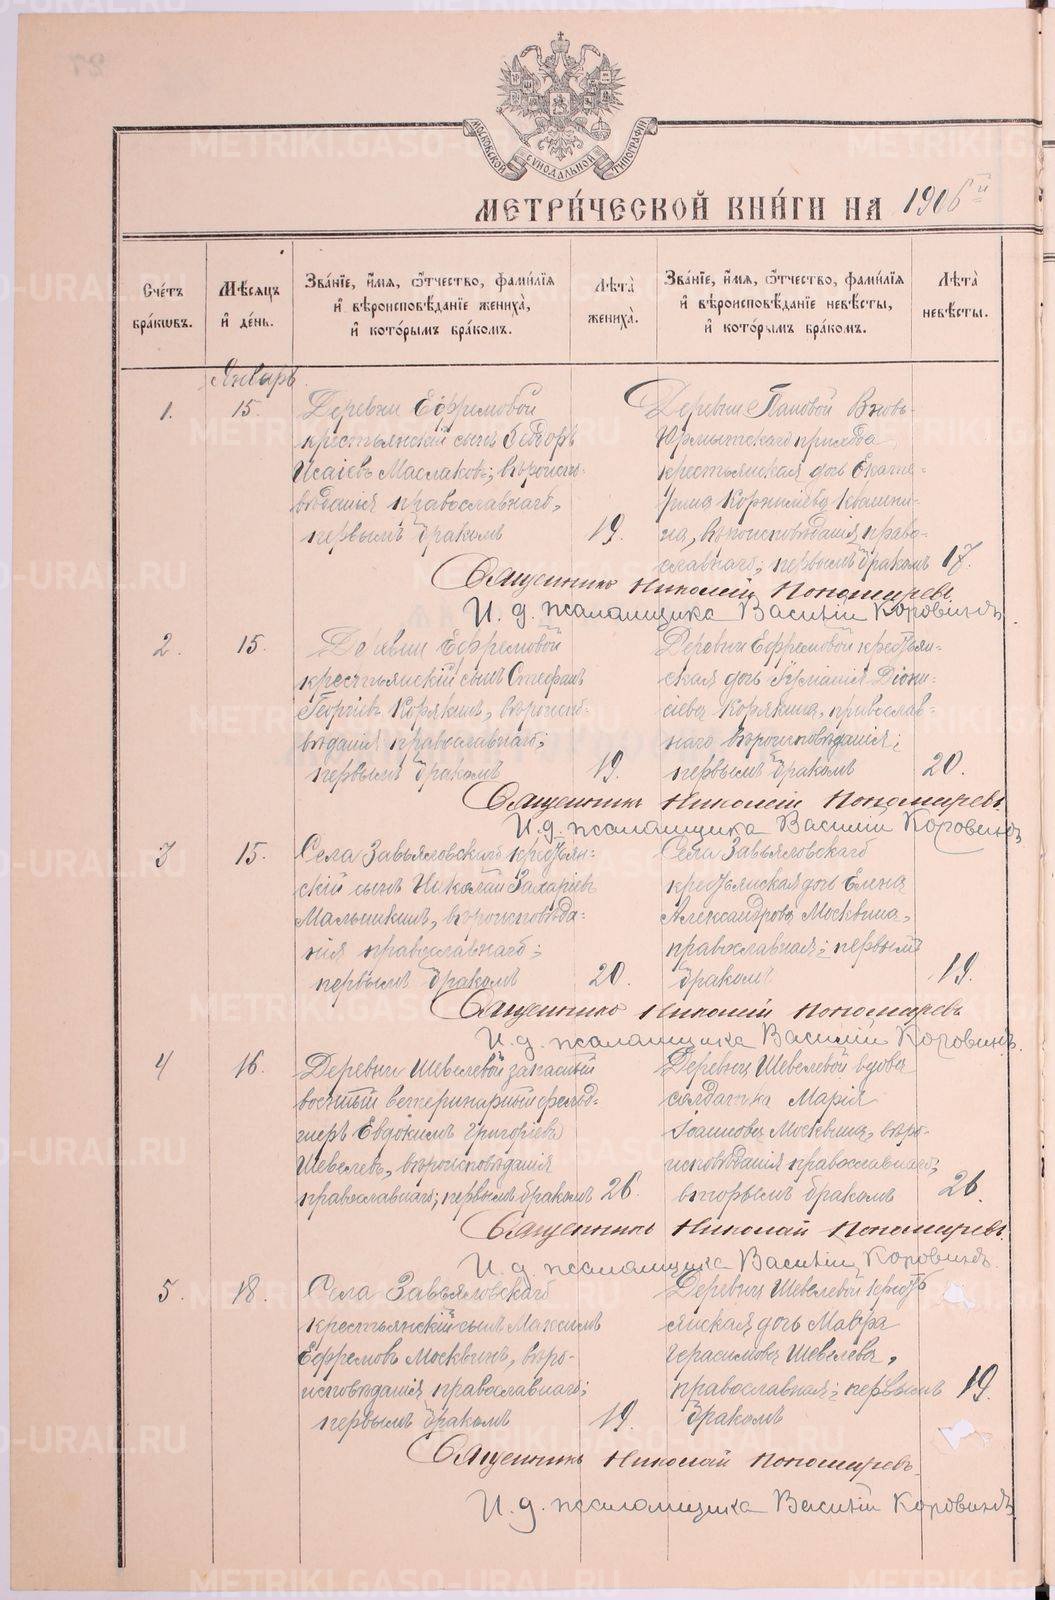 МОСКОВСКОЙ СѴНОДАЛЬНОЙ ТИПОГРАФІИ
МЕТРИ́ЧЕСКОЙ КНИ́ГИ НА 1906й
Сче́тъ бра́кѡвъ.
Мѣсяцъ и҆ де́нь.
Зва́нїе, и҆́мя, ѻ҆́тчество, фами́лїя и҆ вѣроисповѣ́данїе жениха̀, и҆ кото́рымъ бра́комъ.
Лѣта̀ жениха̀.
Зва́нїе, и҆́мя, ѻ҆́тчество, фами́лїя и҆ вѣроисповѣ́данїе невѣ́сты, и҆ кото́рымъ бра́комъ.
Лѣта̀ невѣ́сты.
Январь.
1.
15.
Деревни Ефремовой
крестьянскій сынъ Ѳеодоръ
Исаіевъ Маслаковъ; вѣроиспо-
вѣданія православнаго,
первымъ бракомъ
19.
Деревни Пановой Вновь-
Юрмытскаго прихода
крестьянская дочь Екате-
рина Корниліева Квашни-
на, вѣроисповѣданія право-
славнаго; первымъ бракомъ
17.
Священникъ Николай Пономаревъ
И. д. псаломщика Василій Коровинъ
2.
15.
Деревни Ефремовой
крестьянскій сынъ Стефанъ
Георгіевъ Корякинъ, вѣроиспо-
вѣданія православнаго;
первымъ бракомъ
19.
Деревни Ефремовой крестьян-
ская дочь Іуліанія Діони-
сіева Корякина, православ-
наго вѣроисповѣданія;
первымъ бракомъ
20.
Священникъ Николай Пономаревъ.
И. д. псаломщика Василій Коровинъ
3
15.
Села Завьяловскаго крестьян-
скій сынъ Николай Захаріевъ
Мальчикинъ, вѣроисповѣда-
нія православнаго;
первымъ бракомъ
20.
Села Завьяловскаго
крестьянская дочь Елена
Александрова Москвина,
православная; первымъ
бракомъ
19.
Священникъ Николай Пономаревъ
И. д. псаломщика Василій Коровинъ.
4
16.
Деревни Шевелевой запасный
военный ветеринарный фельд-
шеръ Евдокимъ Григоріевъ
Шевелевъ, вѣроисповѣданія
православнаго; первымъ бракомъ
26.
Деревни Шевелевой вдова
солдатка Марія
Іоаннова Москвина, вѣро-
исповѣданія православнаго;
вторымъ бракомъ
26.
Священникъ Николай Пономаревъ.
И. д. псаломщика Василій Коровинъ.
5.
18.
Села Завьяловскаго
крестьянскій сынъ Максимъ
Ефремовъ Москвинъ, вѣро-
исповѣданія православнаго;
первымъ бракомъ
19.
Деревни Шевелевой кресть
янская дочь Мавра
Герасимова Шевелева,
православная; первымъ
бракомъ
19.
Священникъ Николай Пономаревъ.
И. д. псаломщика Василій Коровинъ.
METRIKI.GASO-URAL.RU